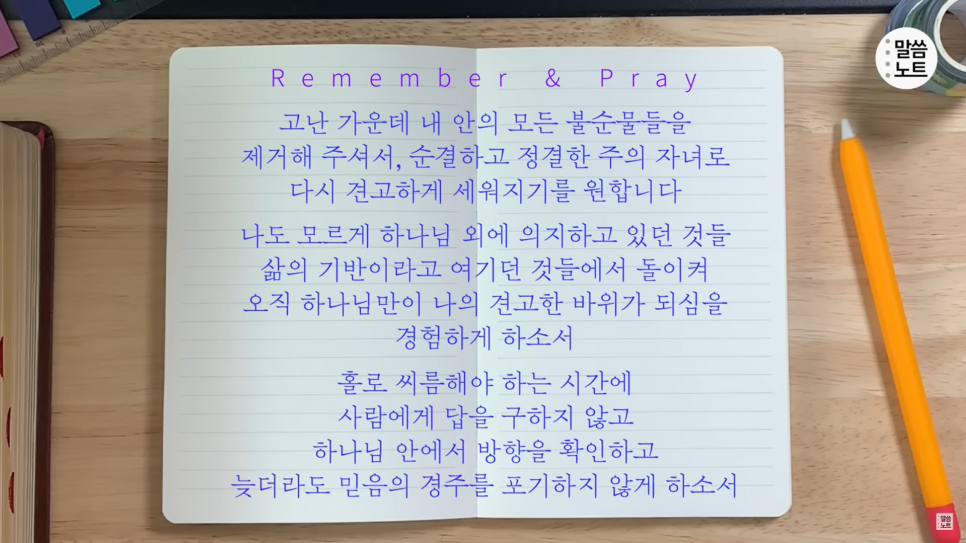 말씀
노트
Remember & Pray
고난 가운데 내 안의 모든 불순물들을
제거해 주셔서, 순결하고 정결한 주의 자녀로
다시 견고하게 세워지기를 원합니다
나도 모르게 하나님 외에 의지하고 있던 것들
삶의 기반이라고 여기던 것들에서 돌이켜
오직 하나님만이 나의 견고한 바위가 되심을
경험하게 하소서
홀로 씨름해야 하는 시간에
사람에게 답을 구하지 않고
하나님 안에서 방향을 확인하고
늦더라도 믿음의 경주를 포기하지 않게 하소서
말씀
노트